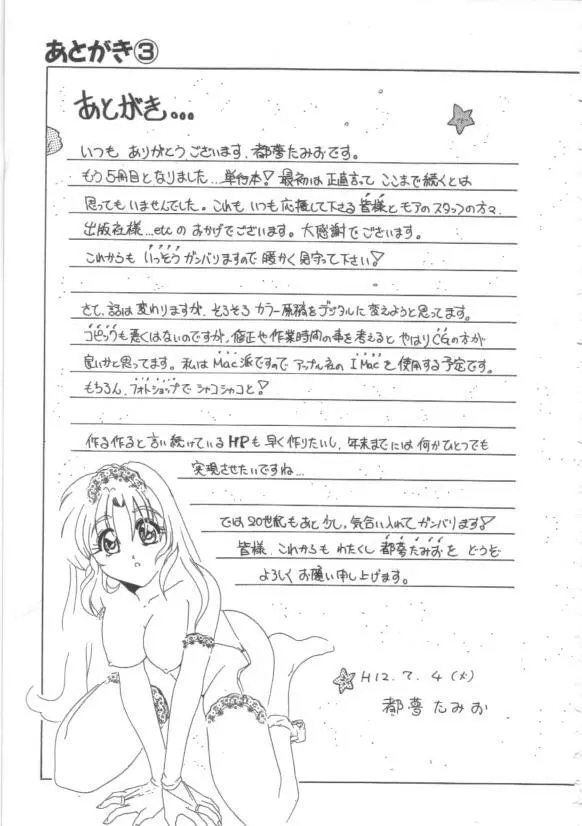 あとがき③
あとがき...
いつも ありがとうございます、都夢たみおです。
もう5冊目となりました...単行本! 最初は正直言って ここまで続くとは
思ってもいませんでした。これも いつも応援して下さる皆様と モアのスタッフの方々、
出版社様...etcの おかげでございます。大感謝でございます。
これからも いっそう ガンバリますので 暖かく 見守って下さい!
さて、話は変わりますが、そろそろ カラー原稿をデジタルに変えようと思ってます。
コピックも悪くはないのですが、修正や作業時間の事を考えると やはりCGの方が
良いかと思ってます。私はMac派ですので アップル社の IMacを使用する予定です。
もちろん、フォトショップで シャコシャコと!
作る作ると言い続けているHPも 早く作りたいし、年末までには何かひとつでも
実現させたいですね...
では20世紀もあと少し、気合い入れてガンバリます!
皆様、これからも わたくし 都夢たみおを どうぞ
よろしくお願い申し上げます。
H12.7.4(火)
都夢たみお